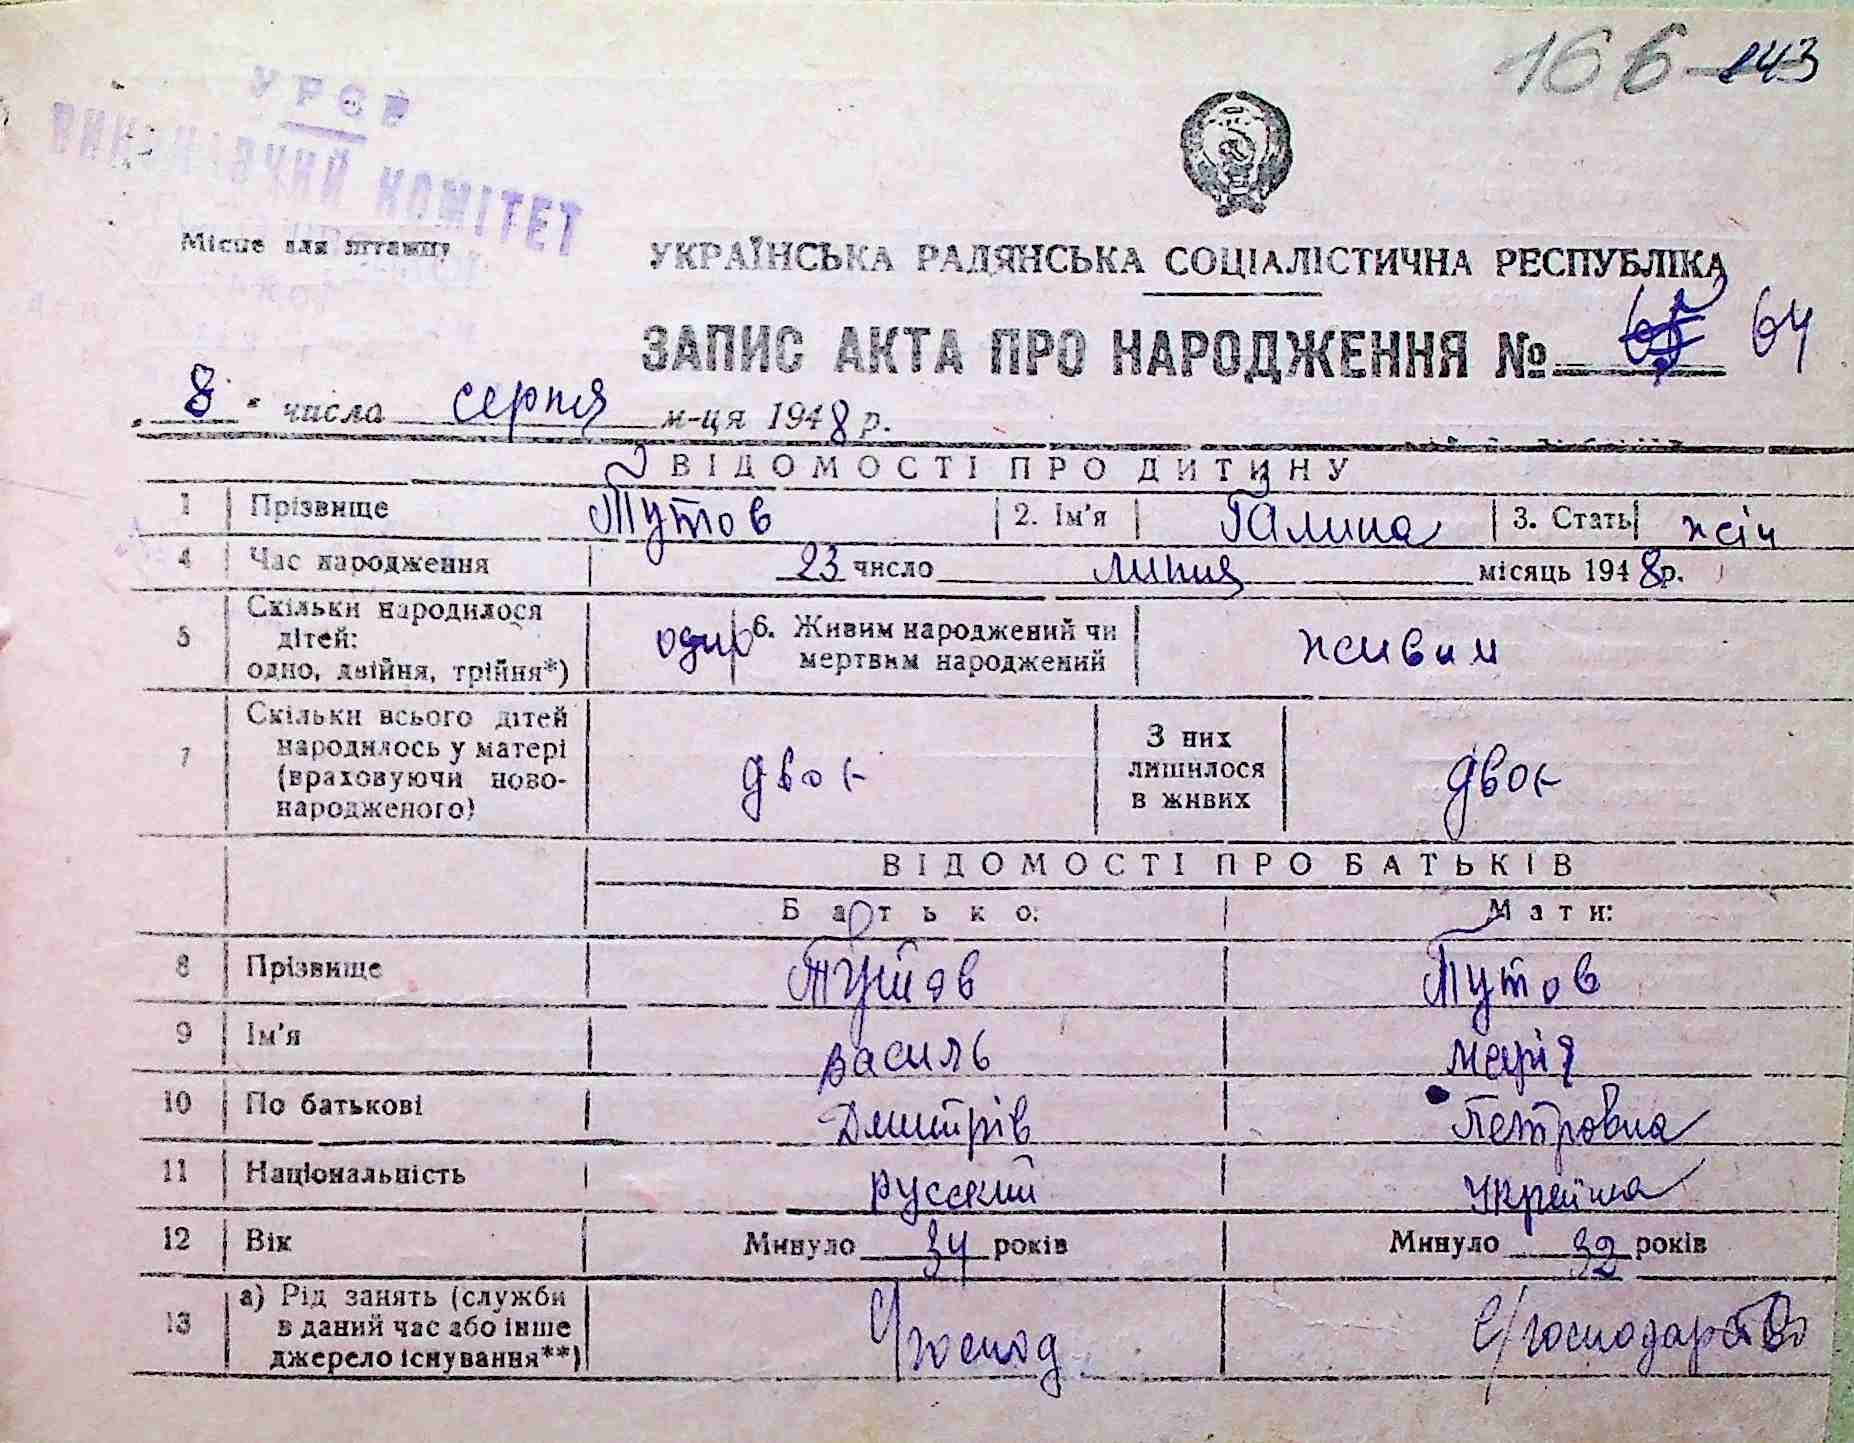 166 143
УРСР
ВИКОНАВЧИЙ КОМІТЕТ
Місце для штампу
УКРАЇНСЬКА РАДЯНСЬКА СОЦІАЛІСТИЧНА РЕСПУБЛІКА
ЗАПИС АКТА ПРО НАРОДЖЕННЯ № 65 64
„8" числа серпня м-ця 1948 р.
ВІДОМОСТІ ПРО ДИТИНУ
1 Прізвище Тутов 2. Ім'я Галина 3. Стать жін
4 Час народження 23 число липня місяць 1948р.
5 Скільки народилося дітей: одно, двійня, трійня*) 6. Живим народжений чи мертвим народжений живим
7 Скільки всього дітей народилось у матері (враховуючи новонародженого) двох З них лишилося в живих двох
ВІДОМОСТІ ПРО БАТЬКІВ
Батько: Мати:
8 Прізвище Тутов Тутов
9 Ім'я Василь Марія
10 По батькові Дмитрів Петровна
11 Національність русский Українка
12 Вік Минуло 34 років Минуло 32 років
13 а) Рід занять (служби в даний час або інше джерело існування**) С/господ С/господарство